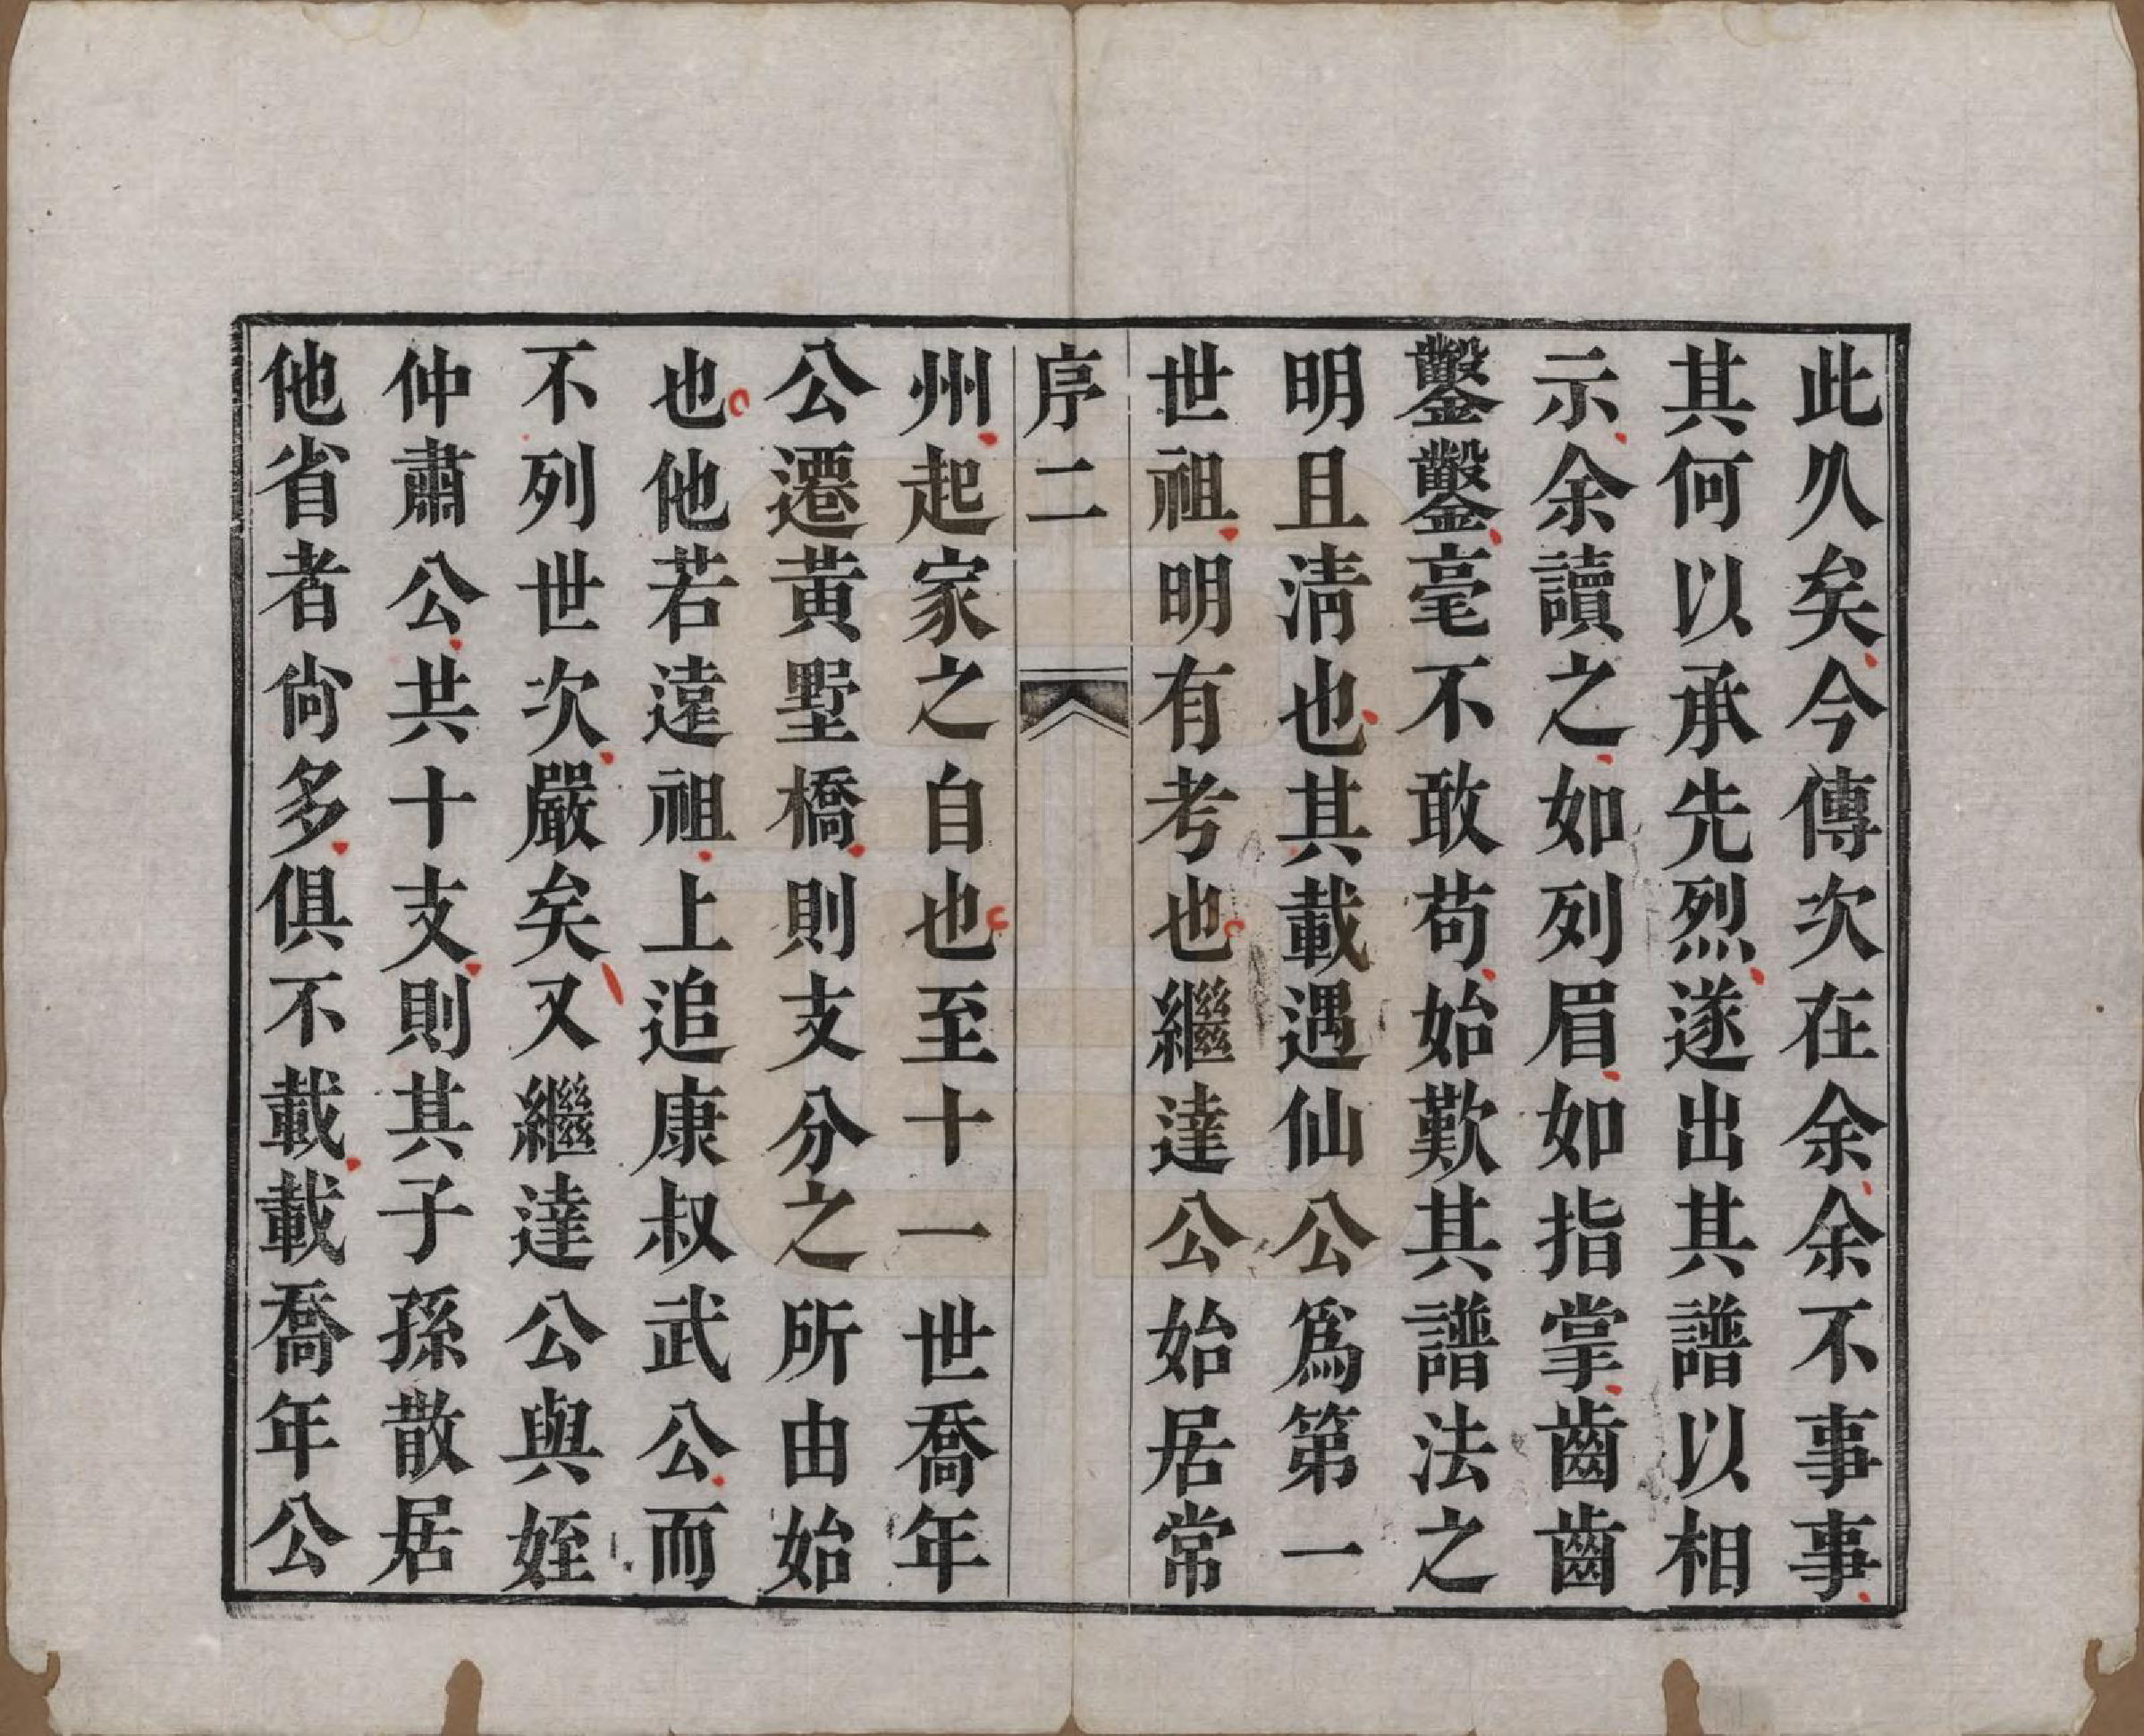 此久矣今傳次在余余不事事
其何以承先烈遂出其譜以相
示余讀之如列眉如指掌齒齒
鑿鑿毫不敢苟始歎其譜法之
明且淸也其載遇仙公爲第一
世祖明有考也繼達公始居常
序二
州起家之自也至十一世喬年
公遷黃墅橋則支分之所由始
也他若遠祖上追康叔武公而
不列世次嚴矣又繼達公與姪
仲肅公共十支則其子孫散居
他省者尙多俱不載載喬年公